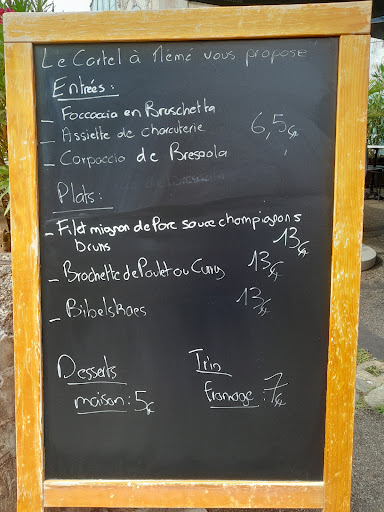 Le Cartel à Mémé vous propose
Entrées :
- Foccaccia en Bruschetta
- Assiette de charcuterie 6,5€
- Carpaccio de Bresaola
Plats :
- Filet mignon de Porc sauce champignons
bruns 13€
- Brochette de Poulet au Curry 13€
- Bibelskaes 13€
Desserts
maison : 5€
Trio
fromage : 7€